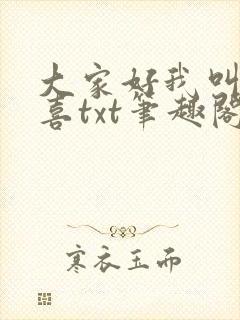 大家好我叫
喜txt笔趣阁
寒衣玉而